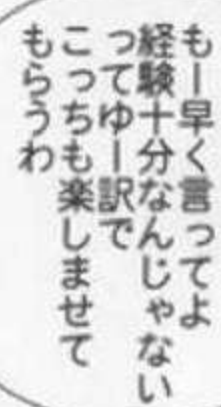 もー早く言ってよ
経験十分なんじゃない
ってゆー訳で
こっちも楽しませて
もらうわ